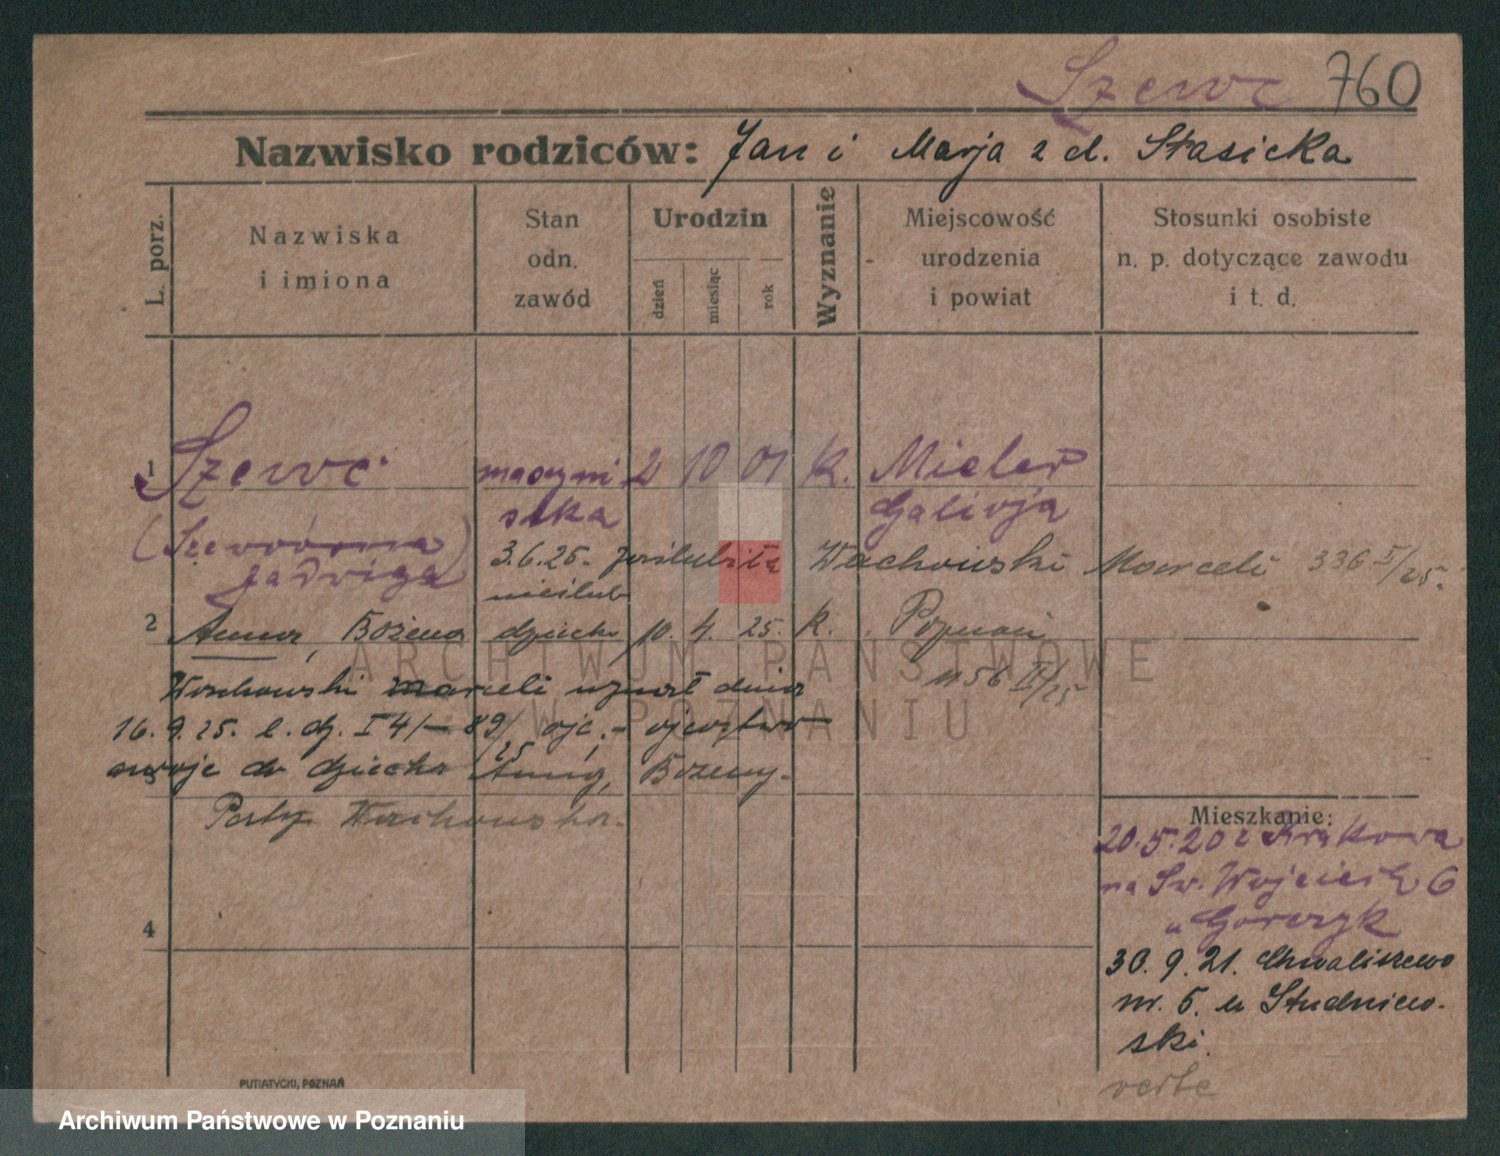 Szewc 760
Nazwisko rodziców: Jan i Marja z d. Stasicka
L. porz.
Nazwiska
i imiona
Stan
odn.
zawód
Urodzin
dzień
miesiąc
rok
Wyznanie
Miejscowość
urodzenia
i powiat
Stosunki osobiste
n. p. dotyczące zawodu
i t. d.
1 Szewc 2 10 01 k. Mielec
stka Galicja
(Szewcówna)
Jadwiga
3.6.25. poślubiła Wachowski Marceli 336 I/25.
nieślub
2 Anna, Bożena dziecko 10. 4. 25. k. Poznań
1156 II/25
Wachowski Marceli uznał dnia
16. 9. 25. l. dz. I 41 — 89/25 ojcowstwo
swoje do dziecka Anny, Bożeny.
3
Wachowska.
4
Mieszkanie:
20.5.20 z Krakowa
na Św. Wojciech 6
" Gorczyk
30. 9. 21. Chwaliszewo
nr. 5. u Studniew-
ski.
verte
PUTIATYCKI, POZNAŃ
ARCHIWUM PAŃSTWOWE
W POZNANIU
Archiwum Państwowe w Poznaniu